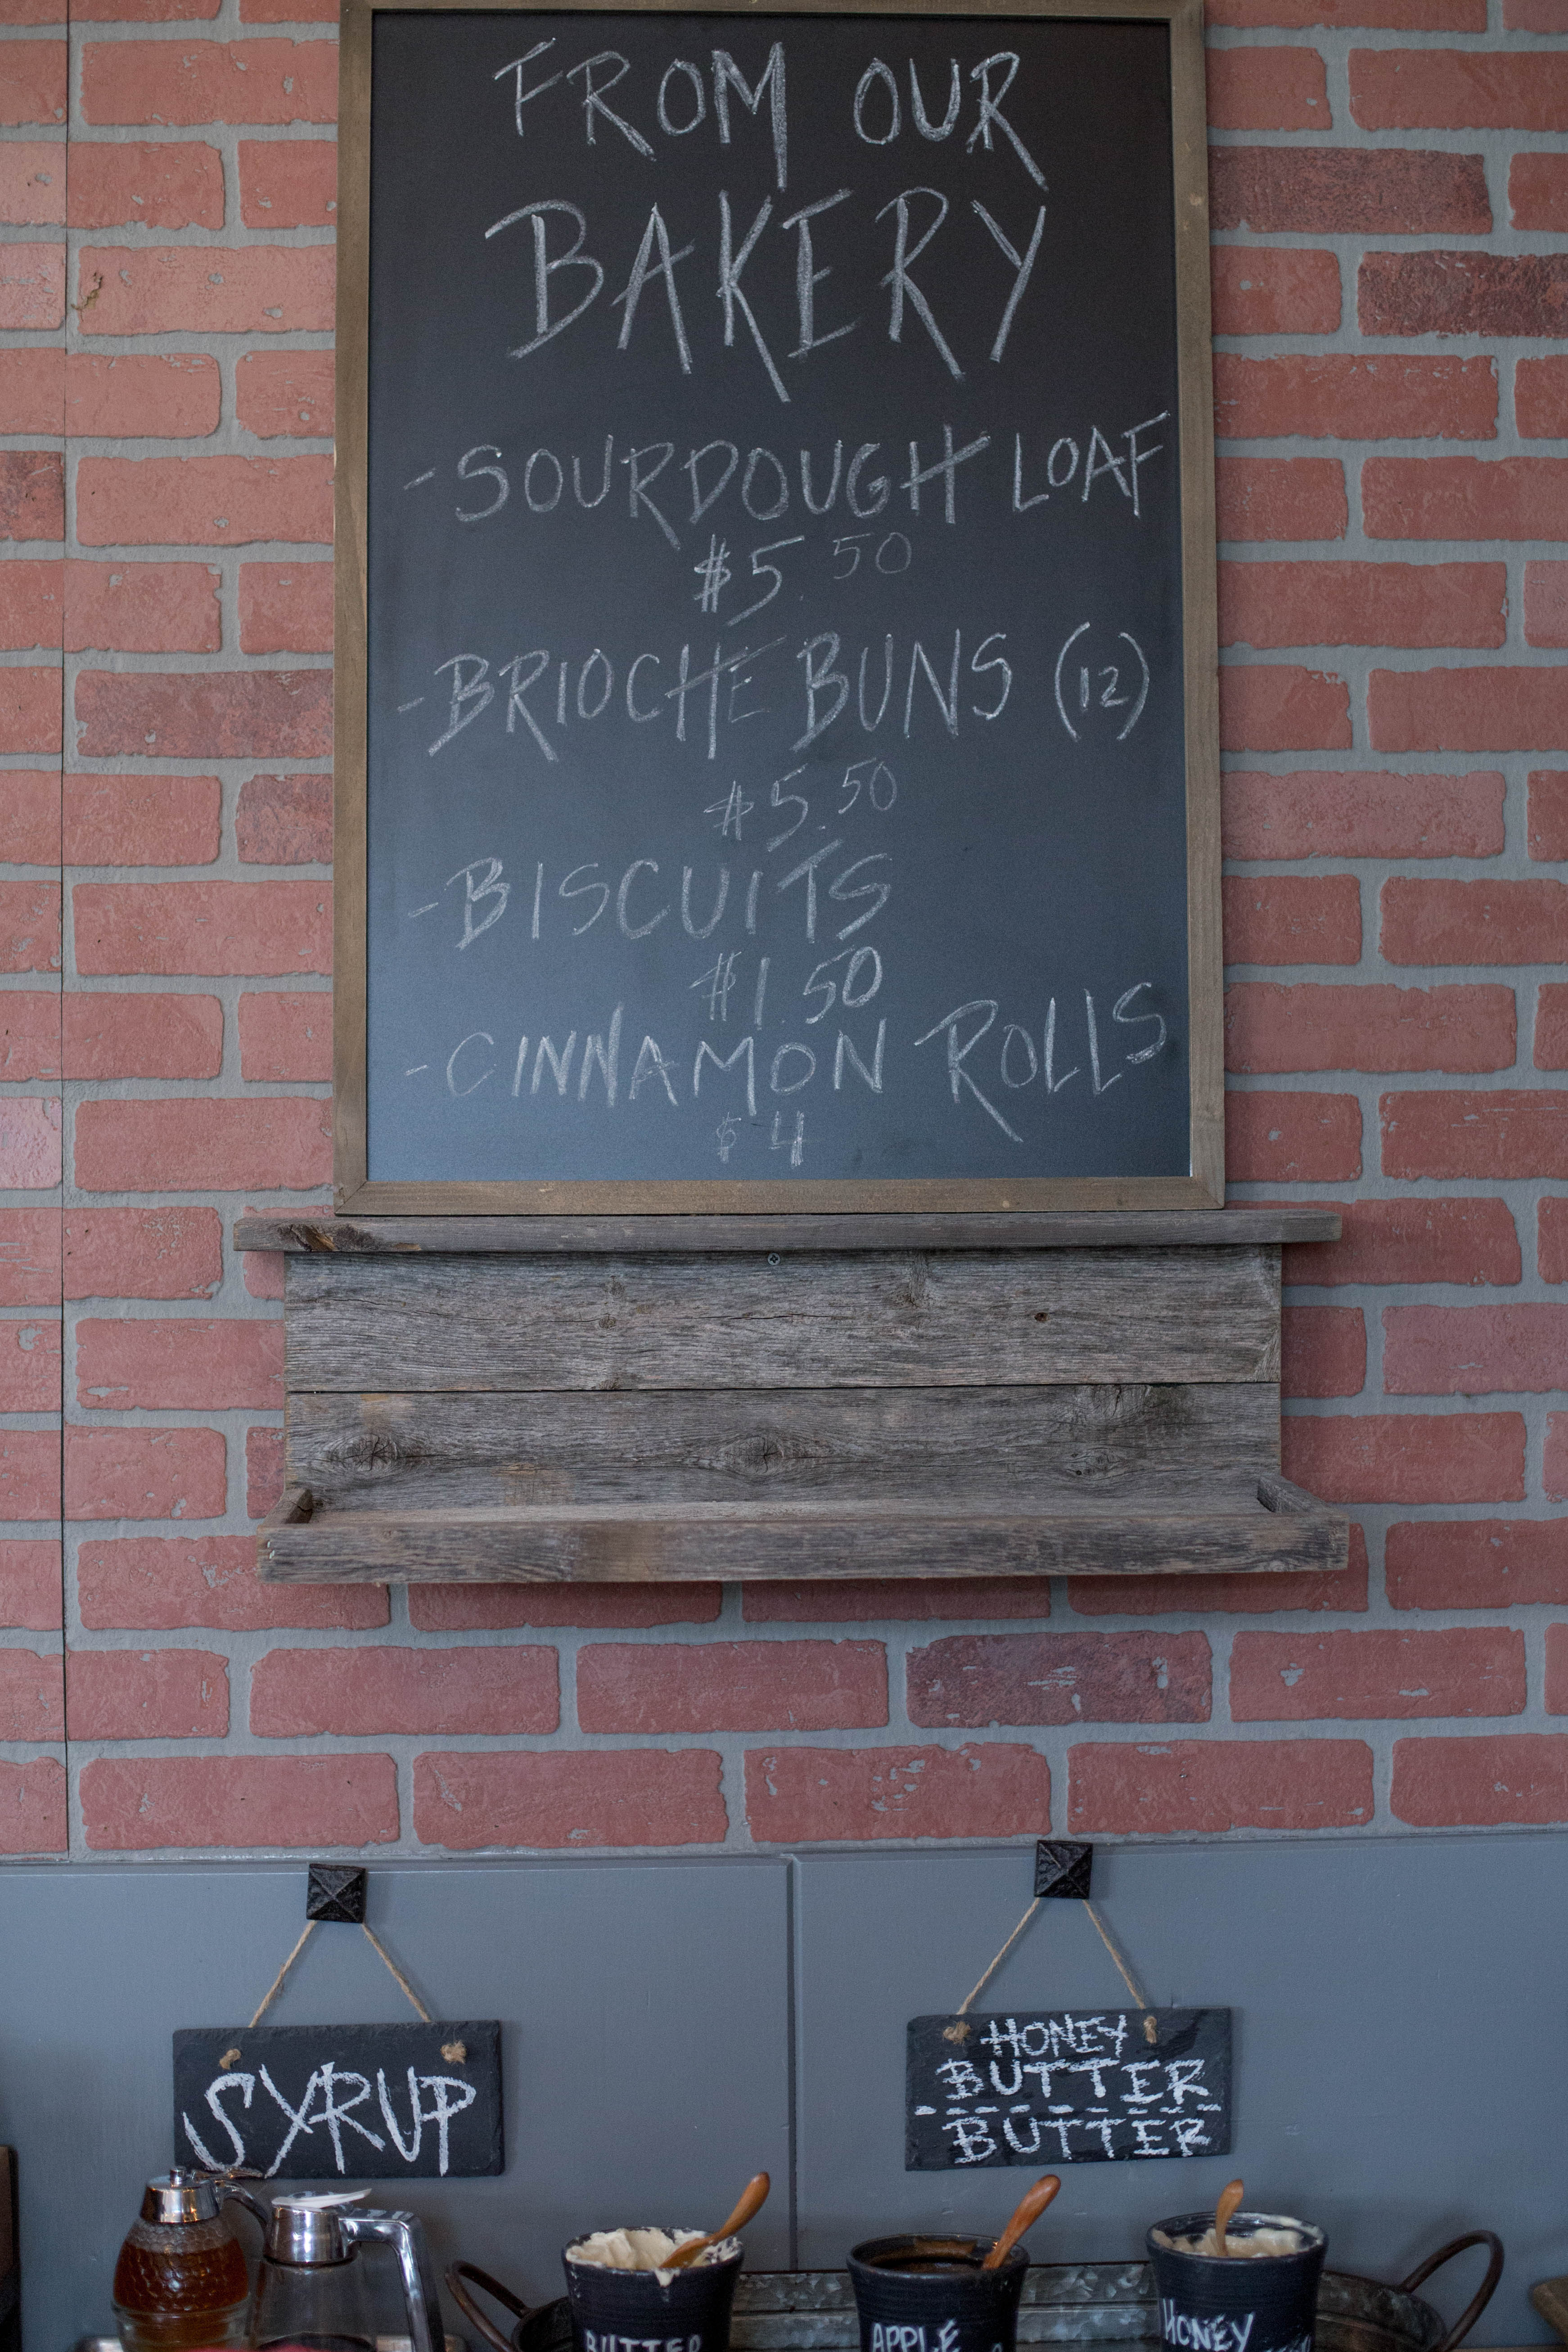 FROM OUR
BAKERY
-SOURDOUGH LOAF
$5.50
-BRIOCHE BUNS (12)
$5.50
-BISCUITS
$1.50
-CINNAMON ROLLS
$4
SYRUP
HONEY
BUTTER
BUTTER
BUTTER
APPLE
HONEY